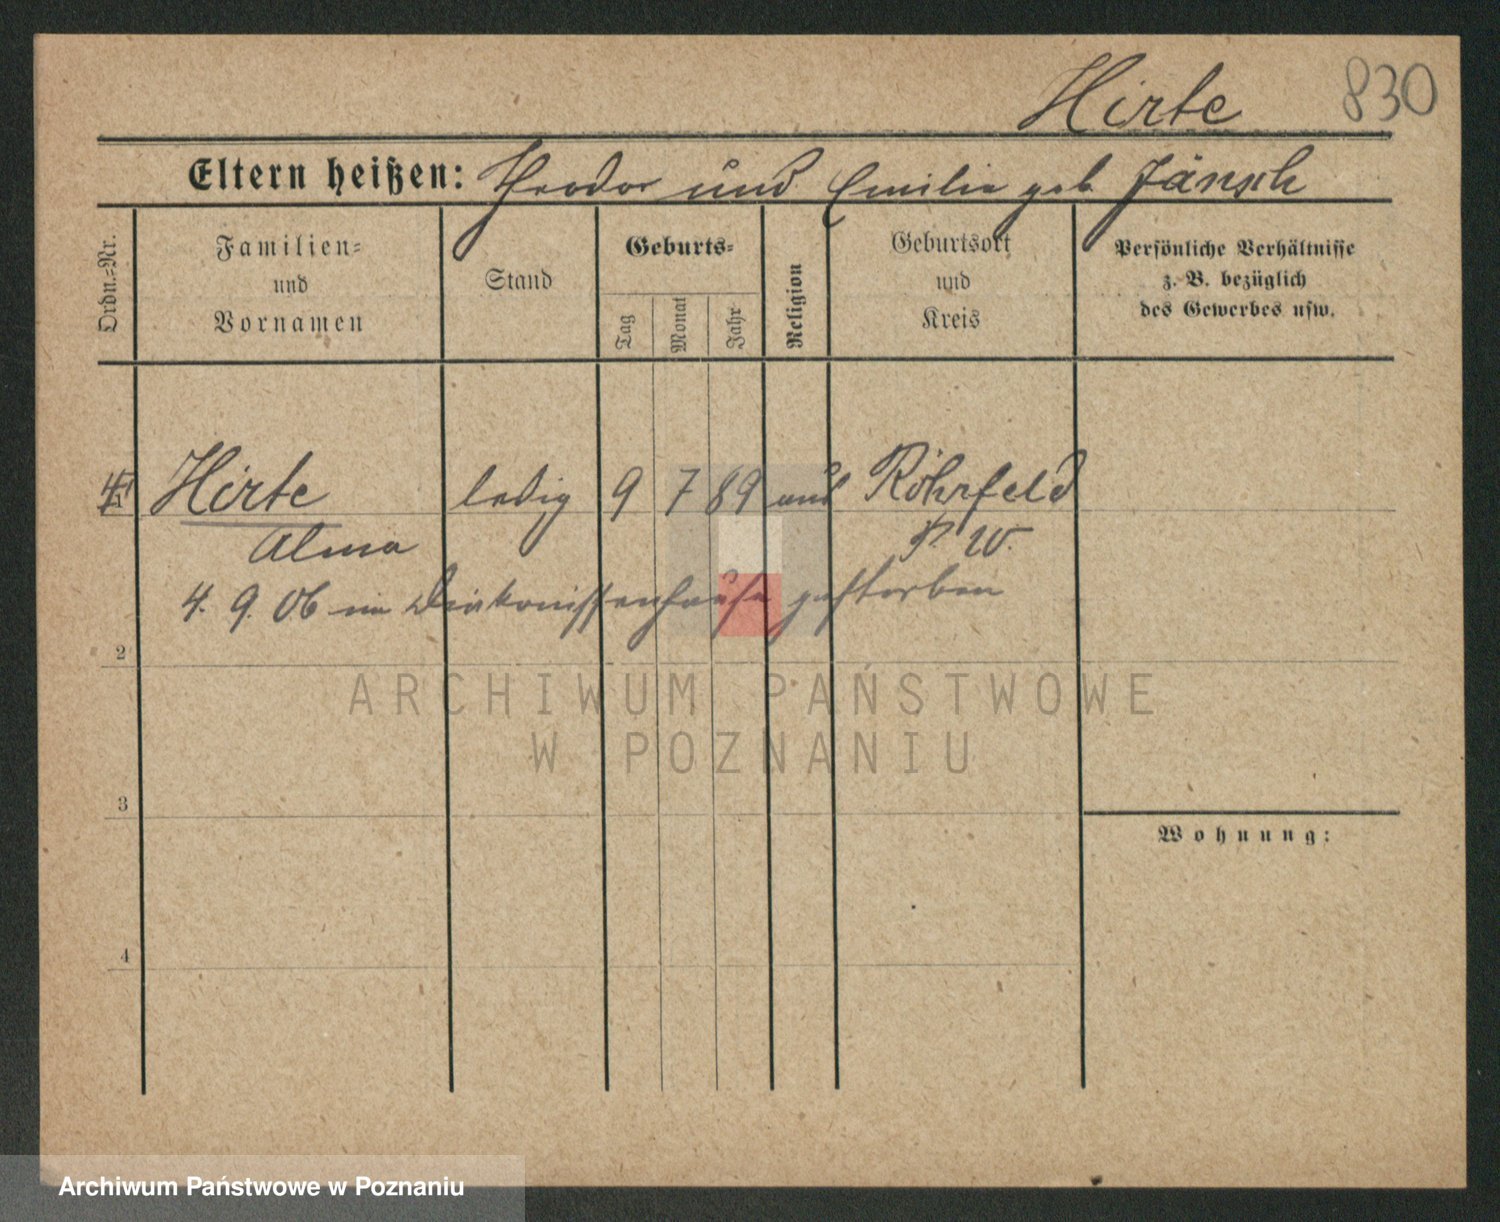 Hirte 830
Eltern heißen: Theodor und Emilie geb. Jänsch
Ordn.-Nr.
Familien-
und
Vornamen
Stand
Geburts-
Tag
Monat
Jahr
Religion
Geburtsort
und
Kreis
Persönliche Verhältnisse
z. B. bezüglich
des Gewerbes usw.
Hirte ledig 9 7 89 Röhrfeld
Alma P. W.
4. 9. 06 im Diakonissenhause gestorben
2
ARCHIWUM PAŃSTWOWE
W POZNANIU
3
Wohnung:
4
Archiwum Państwowe w Poznaniu